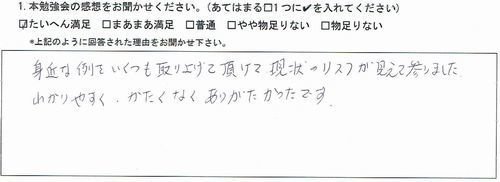 1. 本勉強会の感想をお聞かせください。(あてはまる□1つに✔を入れてください)
☑たいへん満足 □まあまあ満足 □普通 □やや物足りない □物足りない
*上記のように回答された理由をお聞かせ下さい。
身近な例をいくつも取り上げて頂けて現状のリスクが見えて参りました
わかりやすく、かたくなくありがたかったです